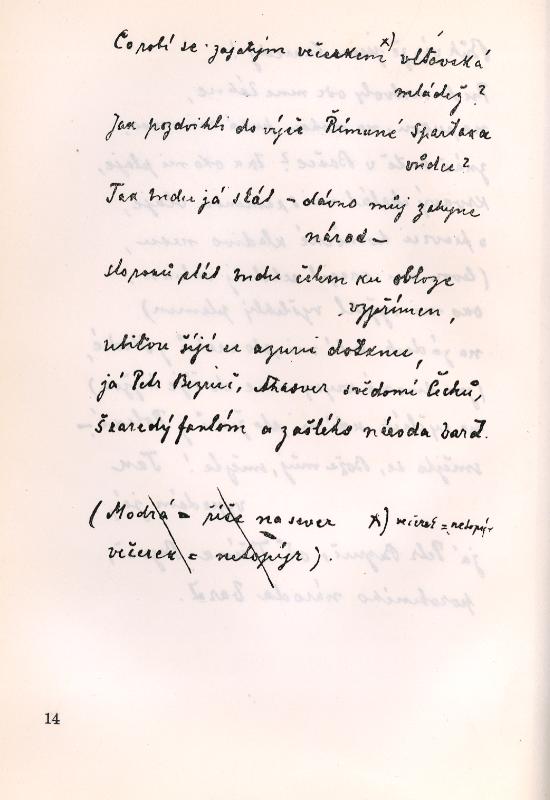 Co robí se zajatým večerkem x) vltavská
mládež?
Jak pozdvihli do výše Římané Spartaka
vůdce?
Tak budu já stát – dávno můj zahyne
národ –
sto roků stát budu čelem ku obloze
vzpřímen,
ubitou šíjí se azuru dotknu,
já Petr Bezruč, Ahasver svědomí Čechů,
škaredý fantóm a zašlého národa bard.
(Modrá = říše na sever x) večerek = netopýr
večerek = netopýr).
14